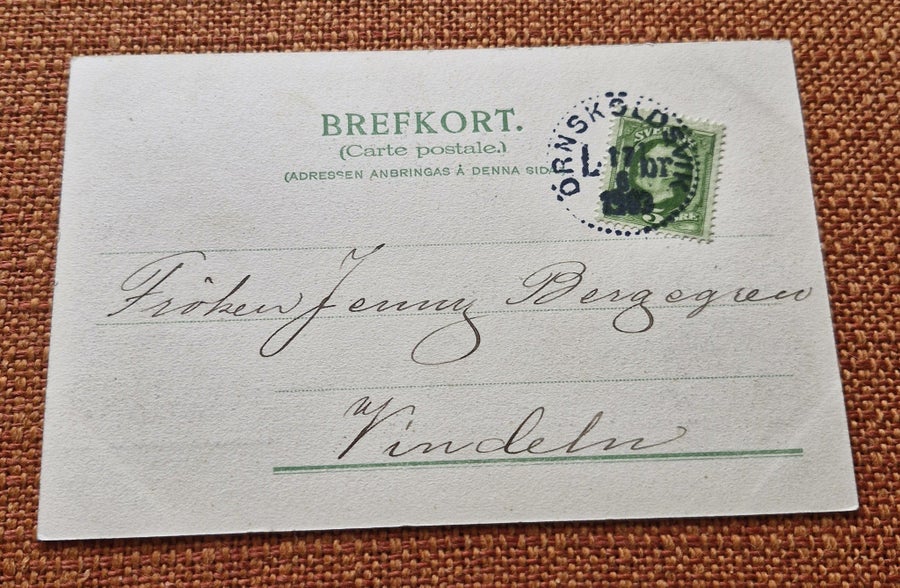 BREFKORT.
(Carte postale.)
(ADRESSEN ANBRINGAS Å DENNA SIDA
ÖRNSKÖLDSVIK
L. 17 br
Fröken Jenny Bergegren
Vindeln